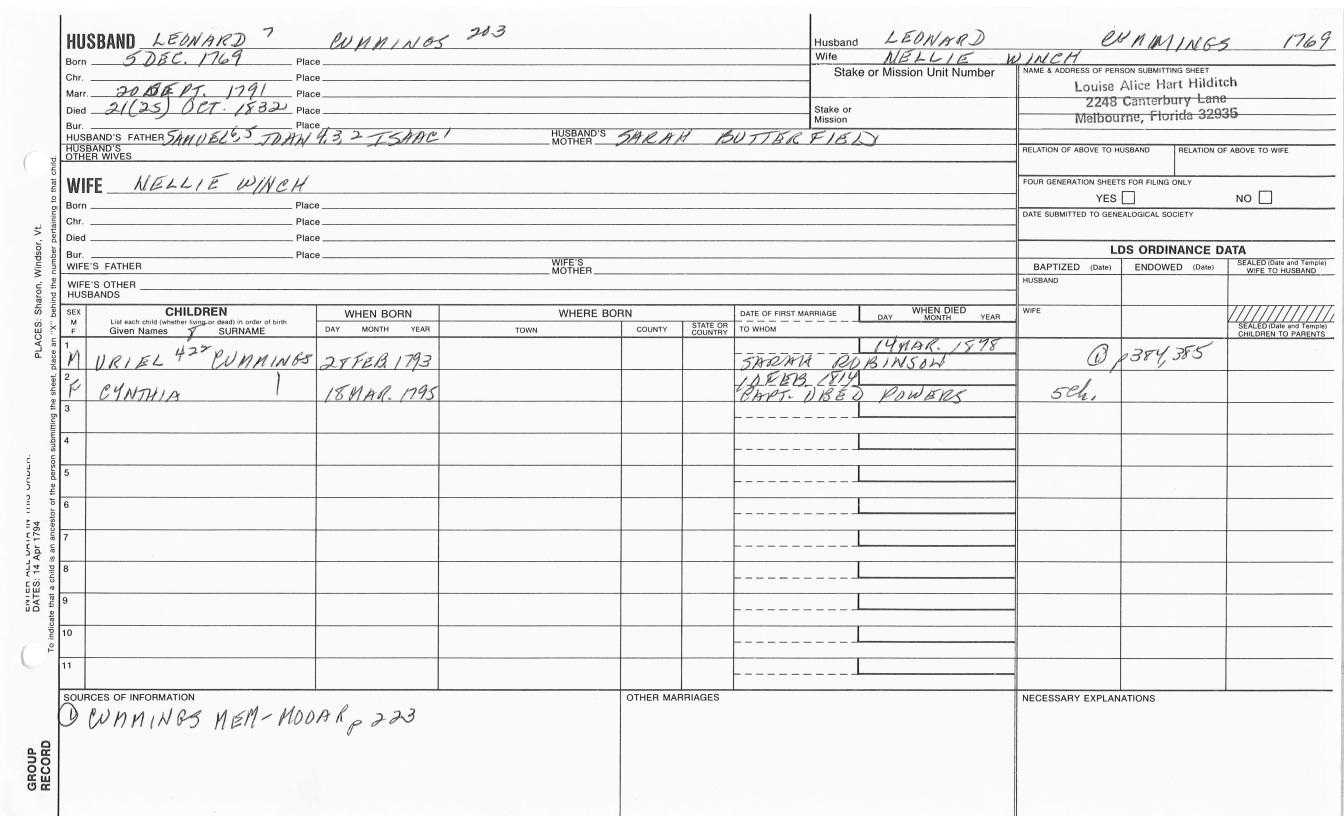 HUSBAND LEONARD 7 CUMMINGS 203
Born 5 DEC. 1769 Place
Chr. Place
Marr. 20 SEPT. 1791 Place
Died 21(25) OCT. 1832 Place
Bur. Place
HUSBAND'S FATHER SAMUEL 6,5 JOHN 4,3,2 ISAAC 1 HUSBAND'S MOTHER SARAH BUTTERFIELD
HUSBAND'S OTHER WIVES
Husband LEONARD CUMMINGS 1769
Wife NELLIE WINCH
Stake or Mission Unit Number
Stake or
Mission
NAME & ADDRESS OF PERSON SUBMITTING SHEET
Louise Alice Hart Hilditch
2248 Canterbury Lane
Melbourne, Florida 32935
RELATION OF ABOVE TO HUSBAND RELATION OF ABOVE TO WIFE
FOUR GENERATION SHEETS FOR FILING ONLY
YES NO
DATE SUBMITTED TO GENEALOGICAL SOCIETY
WIFE NELLIE WINCH
Born Place
Chr. Place
Died Place
Bur. Place
WIFE'S FATHER WIFE'S MOTHER
WIFE'S OTHER HUSBANDS
LDS ORDINANCE DATA
BAPTIZED (Date) ENDOWED (Date) SEALED (Date and Temple) WIFE TO HUSBAND
HUSBAND
WIFE
SEALED (Date and Temple) CHILDREN TO PARENTS
SEX M F
CHILDREN
List each child (whether living or dead) in order of birth
Given Names 8 SURNAME
WHEN BORN
DAY MONTH YEAR
WHERE BORN
TOWN COUNTY STATE OR COUNTRY
DATE OF FIRST MARRIAGE
TO WHOM
WHEN DIED
DAY MONTH YEAR
1 14 MAR. 1898
M URIEL 422 CUMMINGS 28 FEB 1793 SARAH ROBINSON 1 p384,385
2 10 FEB 1814
F CYNTHIA 18 MAR. 1795 CAPT. OBED POWERS 5ch.
3
4
5
6
7
8
9
10
11
SOURCES OF INFORMATION
1 CUMMINGS MEM-MOOAR p 223
OTHER MARRIAGES
NECESSARY EXPLANATIONS
PLACES: Sharon, Windsor, Vt.
To indicate that a child is an ancestor of the person submitting the sheet, place an "X" behind the number pertaining to that child.
ENTER ALL DATA IN THIS ORDER:
DATES: 14 Apr 1794
GROUP
RECORD